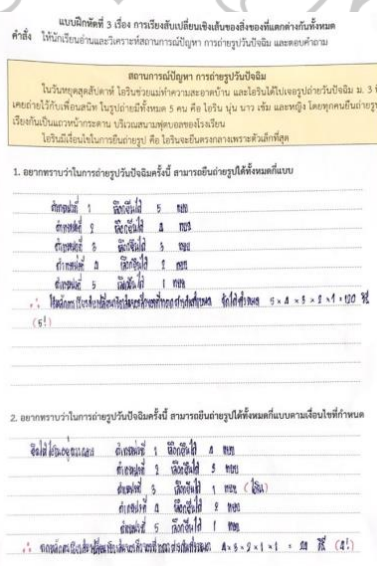 แบบฝึกหัดที่ 3 เรื่อง การเรียงสับเปลี่ยนเชิงเส้นของสิ่งของที่แตกต่างกันทั้งหมด
คำสั่ง ให้นักเรียนอ่านและวิเคราะห์สถานการณ์ปัญหา การถ่ายรูปวันปัจฉิม และตอบคำถาม
สถานการณ์ปัญหา การถ่ายรูปวันปัจฉิม
ในวันหยุดสุดสัปดาห์ ไอรินช่วยแม่ทำความสะอาดบ้าน และไอรินได้ไปเจอรูปถ่ายวันปัจฉิม ม. 3 ที่
เคยถ่ายไว้กับเพื่อนสนิท ในรูปถ่ายมีทั้งหมด 5 คน คือ ไอริน นุ่น นาว เข้ม และหญิง โดยทุกคนยืนถ่ายรูป
เรียงกันเป็นแถวหน้ากระดาน บริเวณสนามฟุตบอลของโรงเรียน
ไอรินมีเงื่อนไขในการยืนถ่ายรูป คือ ไอรินจะยืนตรงกลางเพราะตัวเล็กที่สุด
1. อยากทราบว่าในการถ่ายรูปวันปัจฉิมครั้งนี้ สามารถยืนถ่ายรูปได้ทั้งหมดกี่แบบ
ตำแหน่งที่ 1 เลือกยืนได้ 5 แบบ
ตำแหน่งที่ 2 เลือกยืนได้ 4 แบบ
ตำแหน่งที่ 3 เลือกยืนได้ 3 แบบ
ตำแหน่งที่ 4 เลือกยืนได้ 2 แบบ
ตำแหน่งที่ 5 เลือกยืนได้ 1 แบบ
∴ 5 × 4 × 3 × 2 × 1 = 120 วิธี
(5!)
2. อยากทราบว่าในการถ่ายรูปวันปัจฉิมครั้งนี้ สามารถยืนถ่ายรูปได้ทั้งหมดกี่แบบตามเงื่อนไขที่กำหนด
ตำแหน่งที่ 1 เลือกยืนได้ 4 แบบ
ตำแหน่งที่ 2 เลือกยืนได้ 3 แบบ
ตำแหน่งที่ 3 เลือกยืนได้ 1 แบบ (ไอริน)
ตำแหน่งที่ 4 เลือกยืนได้ 2 แบบ
ตำแหน่งที่ 5 เลือกยืนได้ 1 แบบ
∴ 4 × 3 × 2 × 1 × 1 = 24 วิธี (4!)